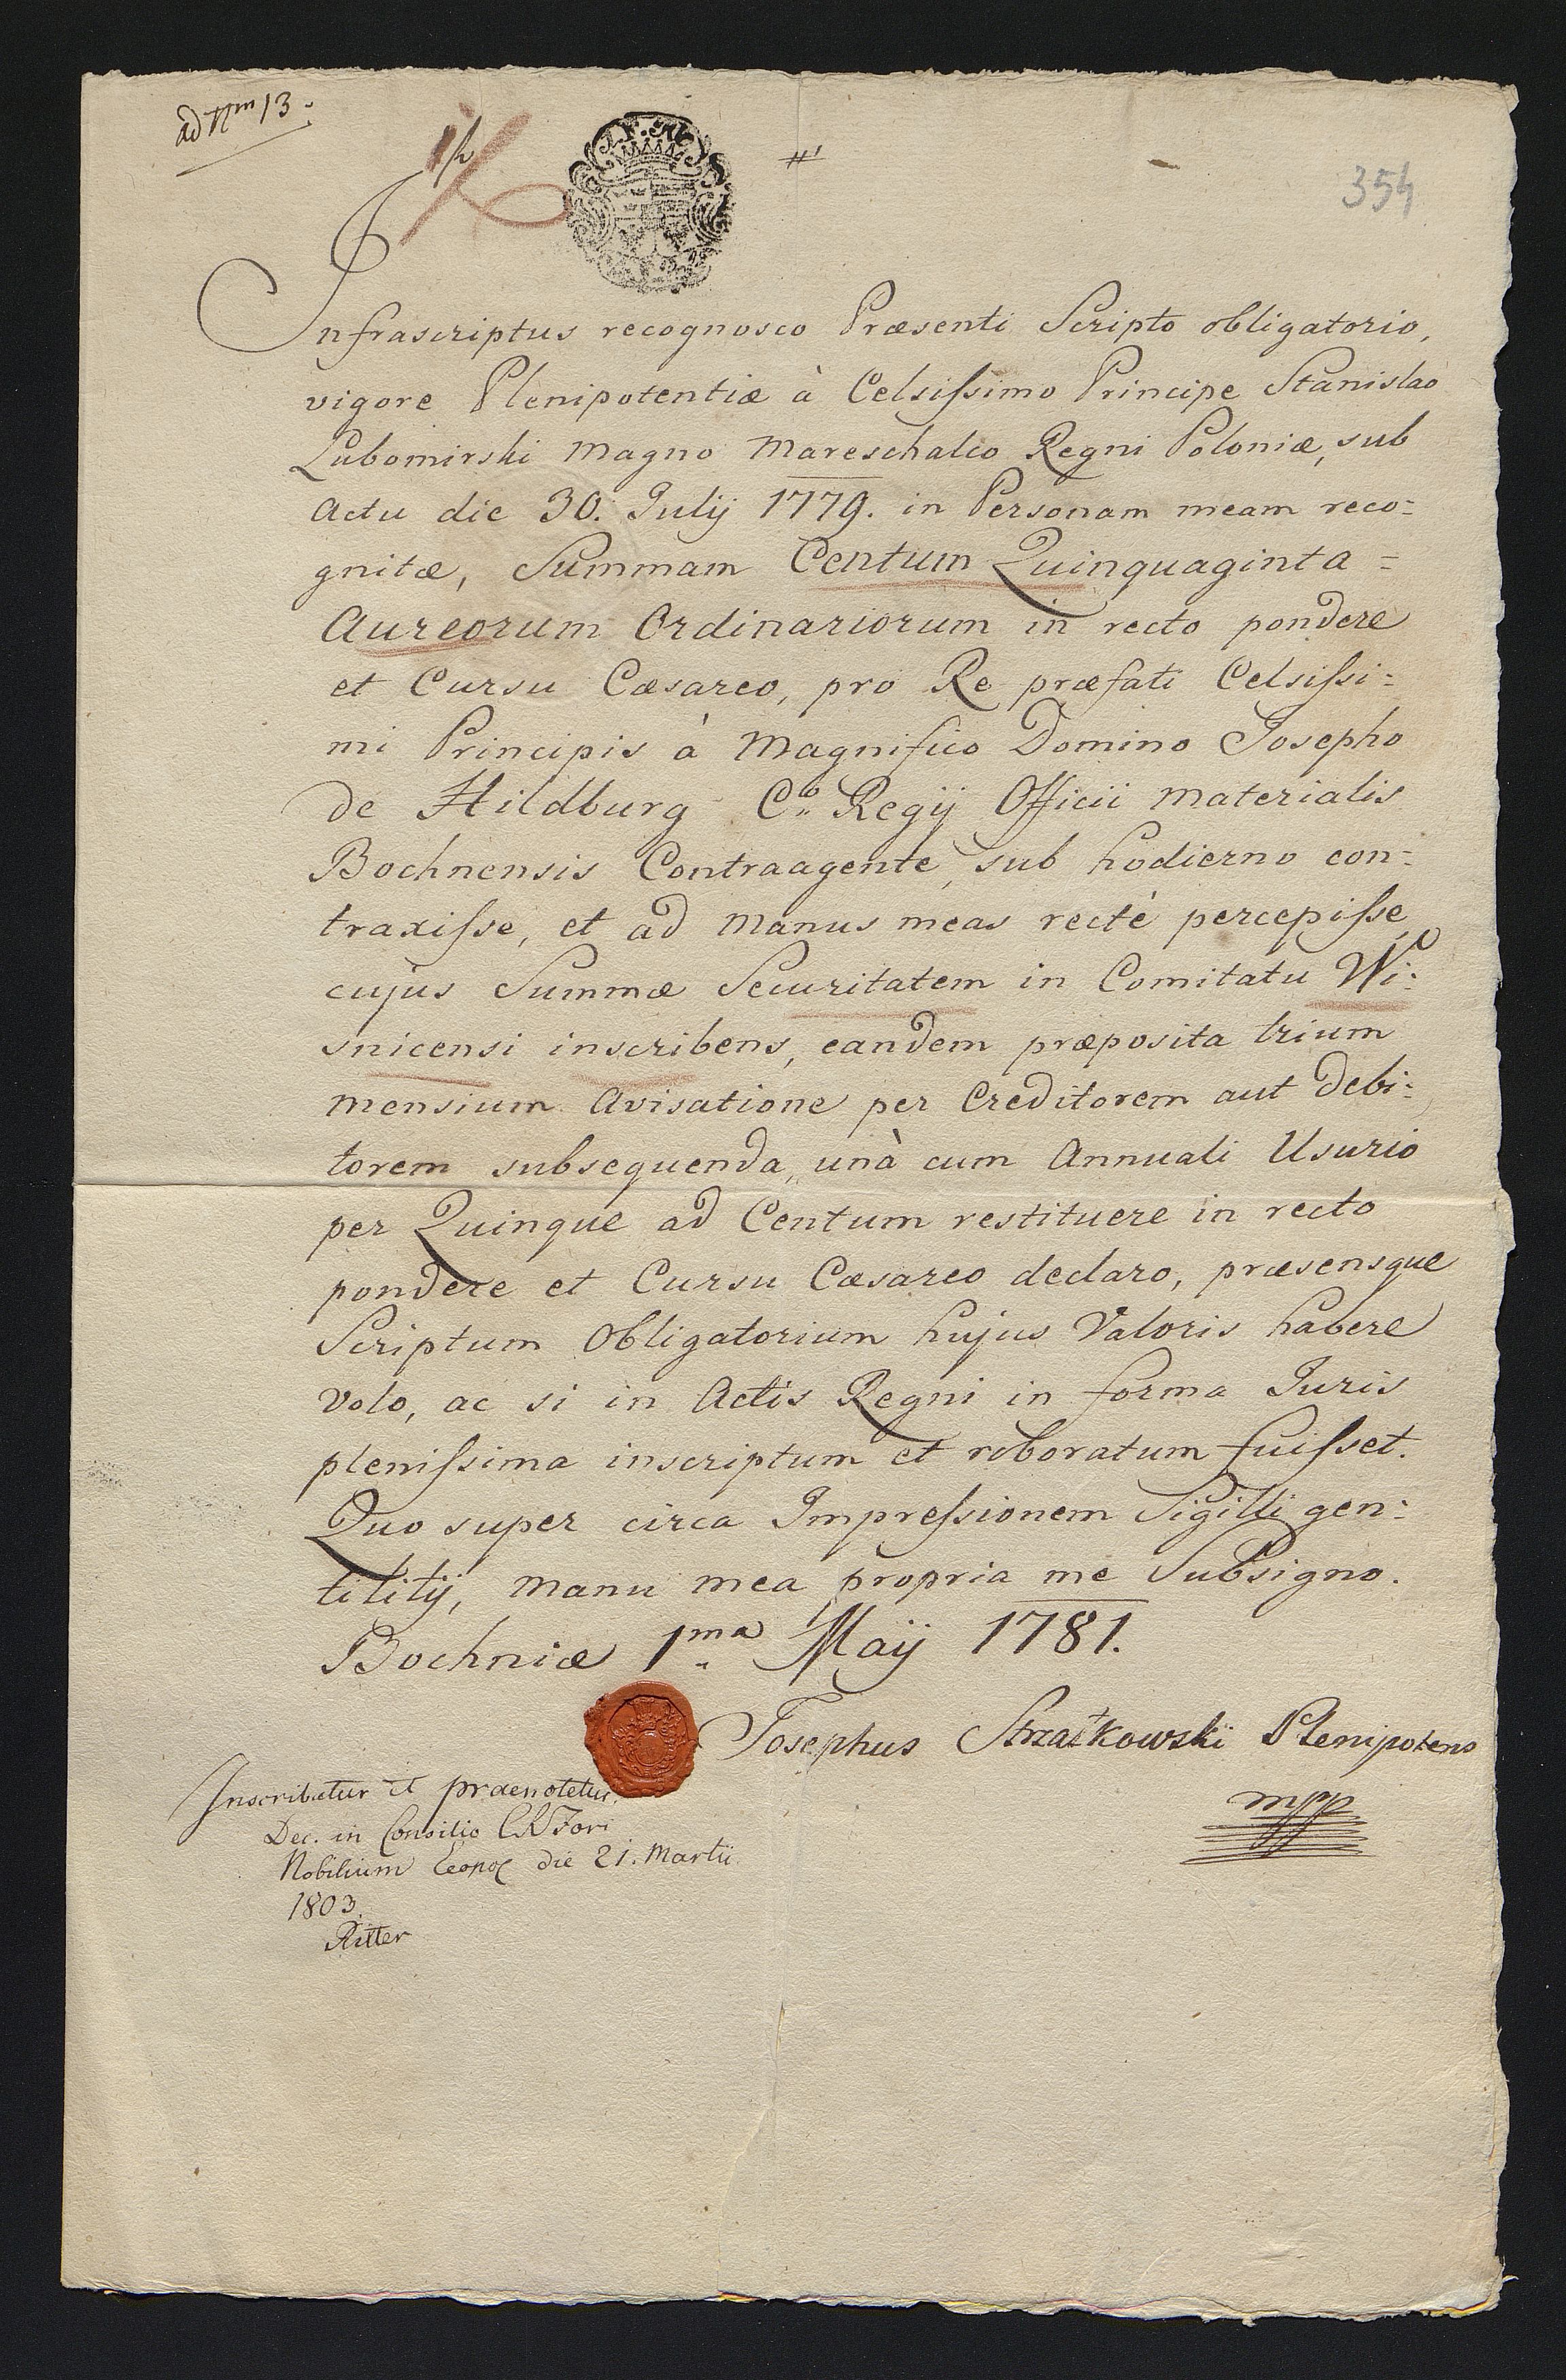 ad Nm 13.
354
Infrascriptus recognosco Præsenti Scripto obligatorio,
vigore Plenipotentiæ à Celsiſsimo Principe Stanislao
Lubomirski Magno Mareschalco Regni Poloniæ, sub
Actu die 30. Julij 1779. in Personam meam reco-
gnitæ, Summam Centum Quinquaginta =
Aureorum Ordinariorum in recto pondere
et Cursu Cæsareo, pro Re præfati Celsiſsi-
mi Principis à Magnifico Domino Josepho
de Hildburg Co Regij Officii Materialis
Bochnensis Contraagente, sub hodierno con-
traxiſse, et ad Manus meas rectè percepiſse,
cujus Summæ Securitatem in Comitatu Wi-
snicensi inscribens, eandem præposita trium
Mensium Avisatione per Creditorem aut Debi-
torem subsequenda, unà cum Annuali Usurio
per Quinque ad Centum restituere in recto
pondere et Cursu Cæsareo declaro, præsensque
Scriptum Obligatorium hujus Valoris habere
volo, ac si in Actis Regni in forma Juris
pleniſsima inscriptum et roboratum fuiſset.
Quo super circa Impreſsionem Sigilli gen-
tilitij, Manu mea propria me Subsigno.
Bochniæ 1ma Maij 1781.
Josephus Strzałkowski Plenipotens
mpp
Inscribatur et praenotetur.
Dec. in Consilio CR Fori
Nobilium Leopol die 21. Martii
1803.
Ritter